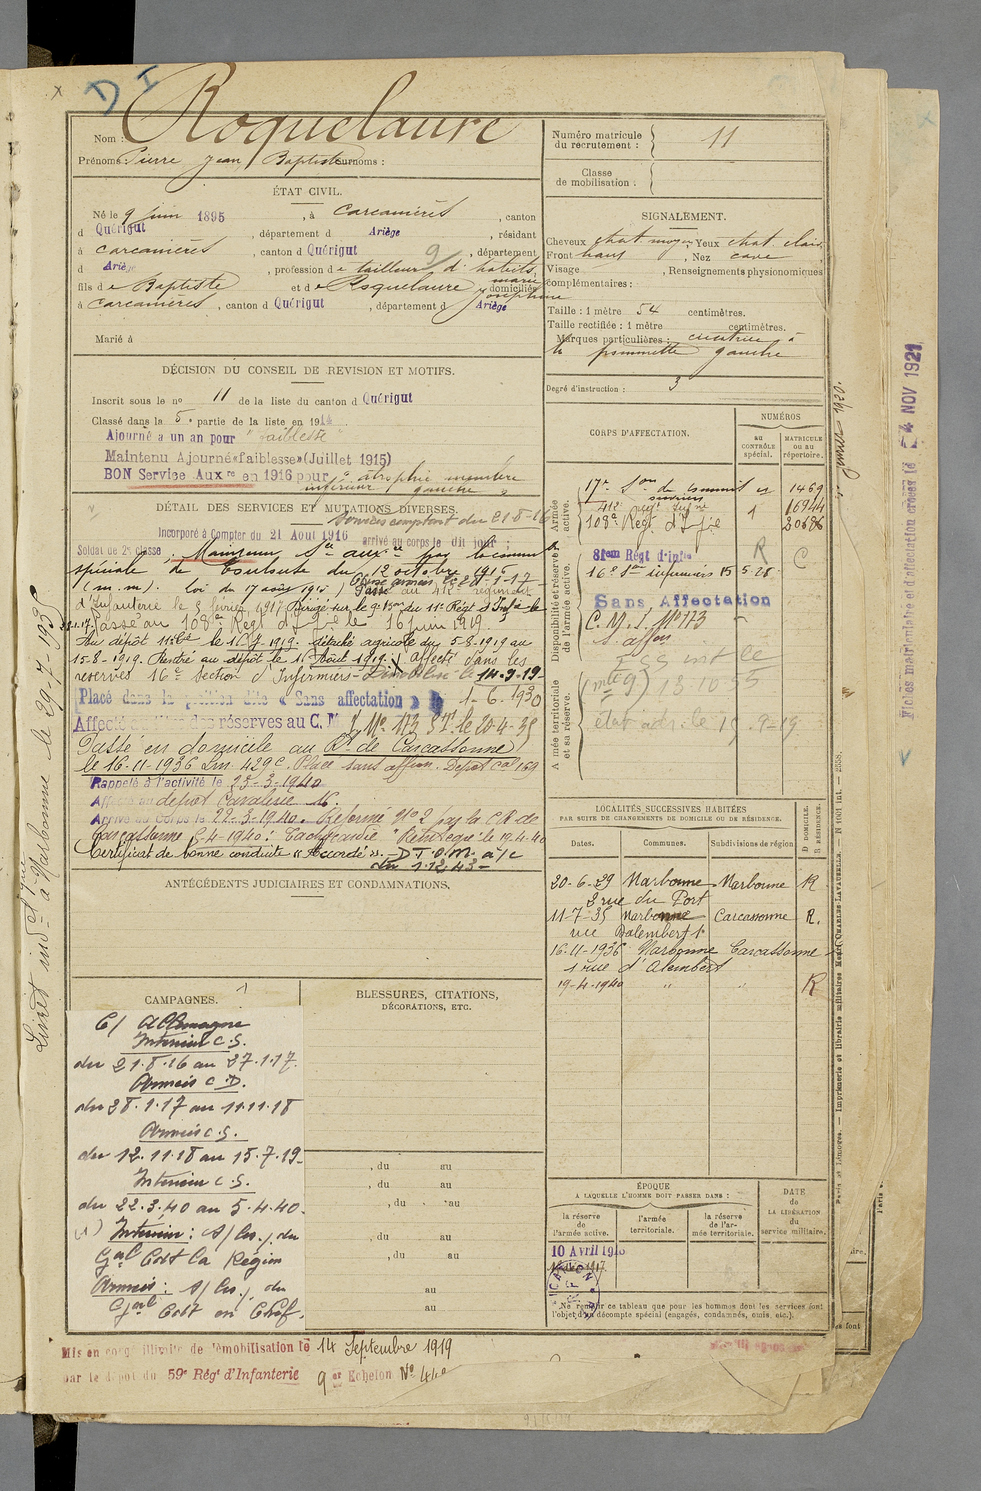 D I
Nom : Roquelaure
Prénoms : Pierre Jean Baptiste surnoms :
Numéro matricule
du recrutement : 11
Classe
de mobilisation :
ÉTAT CIVIL.
Né le 9 juin 1895, à Carcanières, canton
d Quérigut, département d Ariège, résidant
à Carcanières, canton d Quérigut, département
d Ariège, profession de tailleur d'habits,
fils de Baptiste et de Roquelaure Marie Joséphine domiciliés
à Carcanières, canton d Quérigut, département d Ariège
Marié à
SIGNALEMENT.
Cheveux chat. moyen, Yeux chat. clair
Front haut, Nez cave
Visage , Renseignements physionomiques
complémentaires :
Taille : 1 mètre 54 centimètres.
Taille rectifiée : 1 mètre centimètres.
Marques particulières : cicatrice à
la pommette gauche
Degré d'instruction : 3
DÉCISION DU CONSEIL DE REVISION ET MOTIFS.
Inscrit sous le no 11 de la liste du canton d Quérigut
Classé dans la 5e partie de la liste en 1914
Ajourné a un an pour "faiblesse"
Maintenu Ajourné «faiblesse» (Juillet 1915)
BON Service Auxre en 1916 pour "atrophie membre
inférieur gauche"
DÉTAIL DES SERVICES ET MUTATIONS DIVERSES.
Services comptant du 21-8-16
Incorporé à Compter du 21 Aout 1916 arrivé au corps le dit jour ;
Soldat de 2e classe. Maintenu Sce auxre par la comm
spéciale de Toulouse du 12 octobre 1916
(m.m.) loi du 17 août 1915) Passé au 41e régiment
d'Infanterie le 3 février 1917 Dirigé sur le 9e Bon du 11e Régt d'Infie le
28.1.17. Passé au 108e Régt d'Infie le 16 juin 1919.
Au dépôt 11e Cie le 15-7-1919. détaché agricole du 5-8-1919 au
15-8-1919. Rentré au dépôt le 16 Août 1919. Affecté dans les
réserves 16e Section d'Infirmiers - le 14-9-19-
Placé dans la position dite « Sans affectation » le 1-6-1930
Affecté au titre des réserves au C. M. I. No 173 St le 20-4-35
Passé en domicile au Rt de Carcassonne
le 16-11-1936 Lm. 429 C. Placé sans affon. Dépôt Cal 169
Rappelé à l'activité le 25-3-1940
Affecté au dépôt Cavalerie 16.
Arrivé au Corps le 22-3-1940. Réformé No 2 par la C.R. de
Carcassonne 5-4-1940 : "Tachycardie" le 19.4.40
Certificat de bonne conduite « Accordé ». D.T.O.M. a/c
du 1.12.43-
ANTÉCÉDENTS JUDICIAIRES ET CONDAMNATIONS.
CORPS D'AFFECTATION.
NUMÉROS
au
CONTRÔLE
spécial.
MATRICULE
ou au
répertoire.
Armée
active.
17e Son de Commis et ouvriers 1469
41e Régt Infie 16944
108e Régt d'Infie 1 20686
Disponibilité et réserve
de l'armée active.
81em Régt d'infie R C
16e Son infirmiers
Sans Affectation
C. M. I. No 173
S. affon
Armée territoriale
et sa réserve.
LOCALITÉS SUCCESSIVES HABITÉES
PAR SUITE DE CHANGEMENTS DE DOMICILE OU DE RÉSIDENCE.
Dates. Communes. Subdivisions de région D DOMICILE. R RÉSIDENCE.
20-6-29 Narbonne Narbonne R
2 rue du Port
11-7-35 Narbonne Carcassonne R.
rue Dalembert
16-11-1936 Narbonne Carcassonne
1 rue d'Alembert
19-4-1940 " " R
CAMPAGNES.
C/ Allemagne
Intérieur C.S.
du 21.8.16 au 27.1.17.
Armées C.D.
du 28.1.17 au 11.11.18
Armées C.S.
du 12.11.18 au 15.7.19-
Intérieur C.S.
du 22.3.40 au 5.4.40.
(1) Intérieur : S/ les / du
Gal Cdt la Région
Armées : S/ les / du
Gal Cdt en Chef.
BLESSURES, CITATIONS,
DÉCORATIONS, ETC.
, du au
, du au
, du au
, du au
, du au
au
au
ÉPOQUE
A LAQUELLE L'HOMME DOIT PASSER DANS :
la réserve
de
l'armée active.
l'armée
territoriale.
la réserve
de l'ar-
mée territoriale.
DATE
de
LA LIBÉRATION
du
service militaire.
10 Avril 1918
Ne remplir ce tableau que pour les hommes dont les services font
l'objet d'un décompte spécial (engagés, condamnés, omis, etc.).
Mis en congé illimité de démobilisation le 14 Septembre 1919
par le dépôt du 59e Régt d'Infanterie 9er Echelon No
Livret indel à Narbonne le 29-7-1935
Paris et Limoges. — Imprimerie et librairie militaires Henri CHARLES-LAVAUZELLE.
Fiches matriculaire et d'affectation créées le 24 NOV 1921